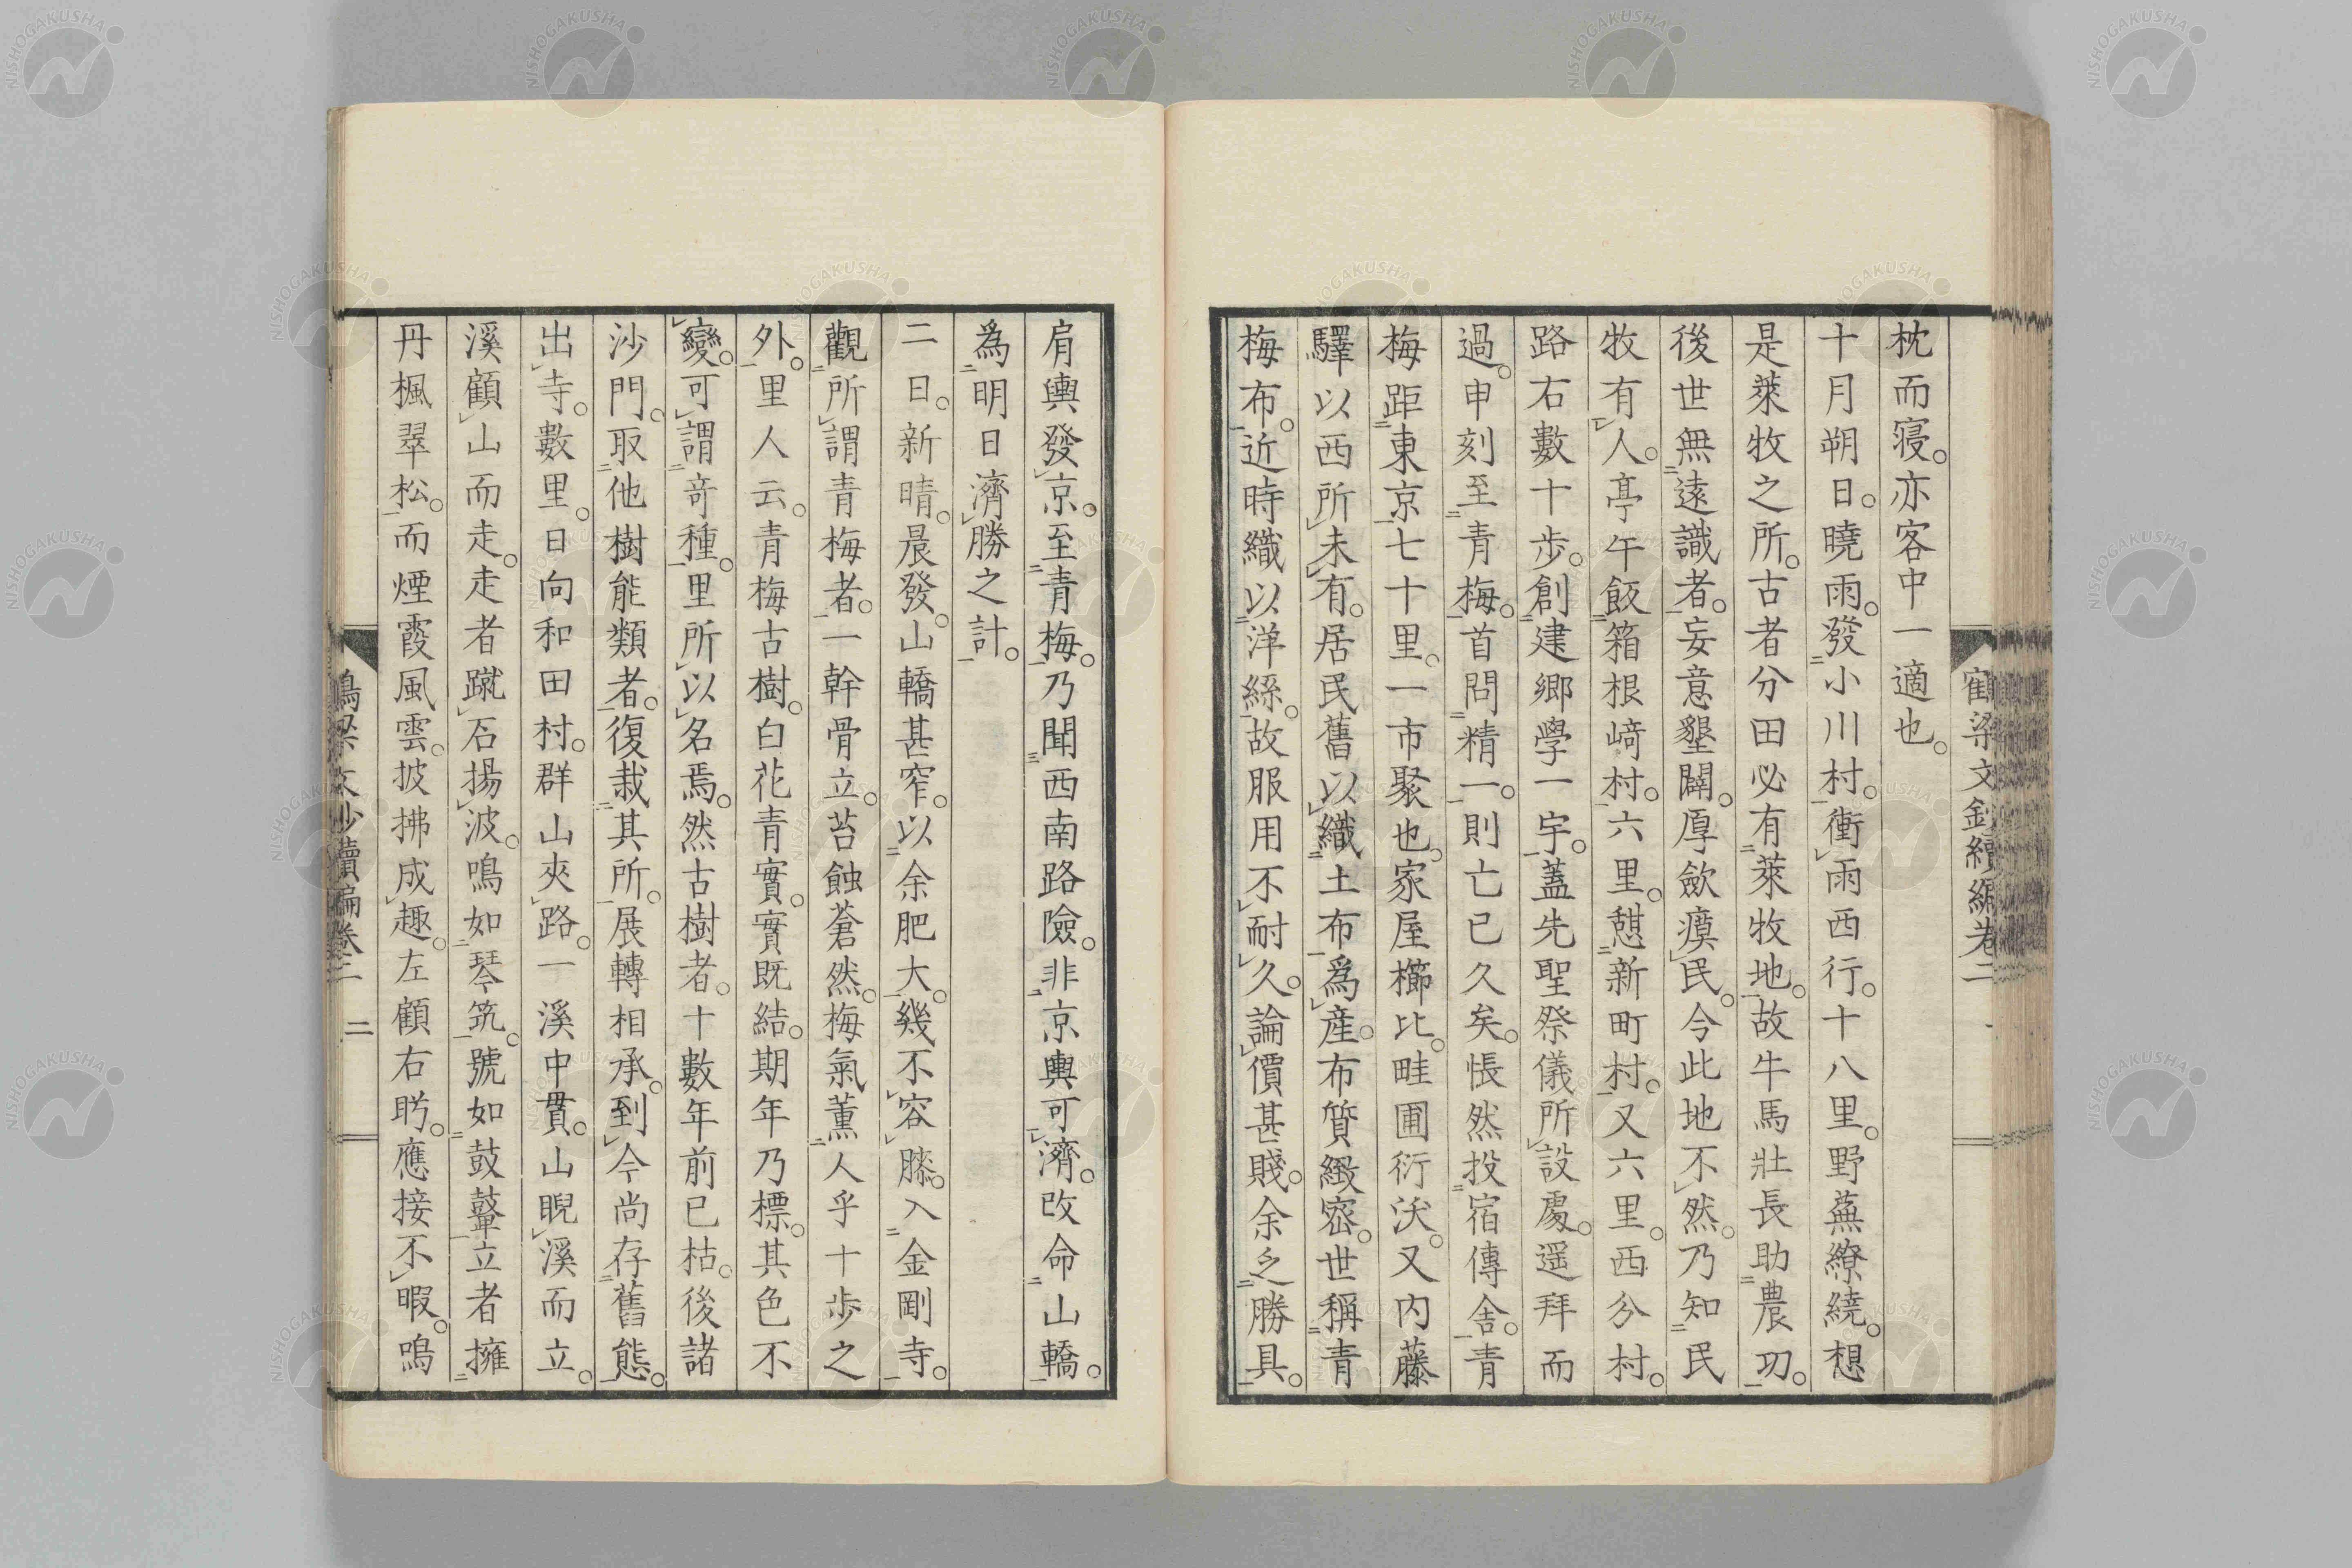 枕而寝。亦客中一適也。
十月朔日。曉雨。發小川村。衝雨西行。十八里。野蕪繚繞。想
是萊牧之所。古者分田必有萊牧地。故牛馬壯長助農功。
後世無遠識者。妄意墾闢。厚歛瘼民。今此地不然。乃知民
牧有人。亭午飯箱根﨑村。六里。憇新町村。又六里。西分村。
路右數十步。創建鄉學一宇。蓋先聖祭儀所設處。遥拜而
過。申刻至青梅。首問精一。則亡已久矣。悵然投宿傳舍。青
梅距東京七十里。一市聚也。家屋櫛比。畦圃衍沃。又内藤
驛以西所未有。居民舊以織土布爲産。布質緻密。世稱青
梅布。近時織以洋絲。故服用不耐久。論價甚賤。余乏勝具。
肩輿發京。至青梅。乃聞西南路險。非京輿可濟。改命山轎。
爲明日濟勝之計。
二日。新晴。晨發。山轎甚窄。以余肥大。幾不容膝。入金剛寺。
觀所謂青梅者。一幹骨立。苔蝕蒼然。梅氣薫人乎十步之
外。里人云。青梅古樹。白花青實。實既結。期年乃標。其色不
變。可謂竒種。里所以名焉。然古樹者。十數年前已枯。後諸
沙門。取他樹能類者。復栽其所。展轉相承。到今尚存舊態。
出寺。數里。日向和田村。群山夾路。一溪中貫。山睨溪而立。
溪顧山而走。走者蹴石揚波。鳴如琴筑。號如鼓鼙。立者擁
丹楓翠松。而煙霞風雲。披拂成趣。左顧右眄。應接不暇。鳴